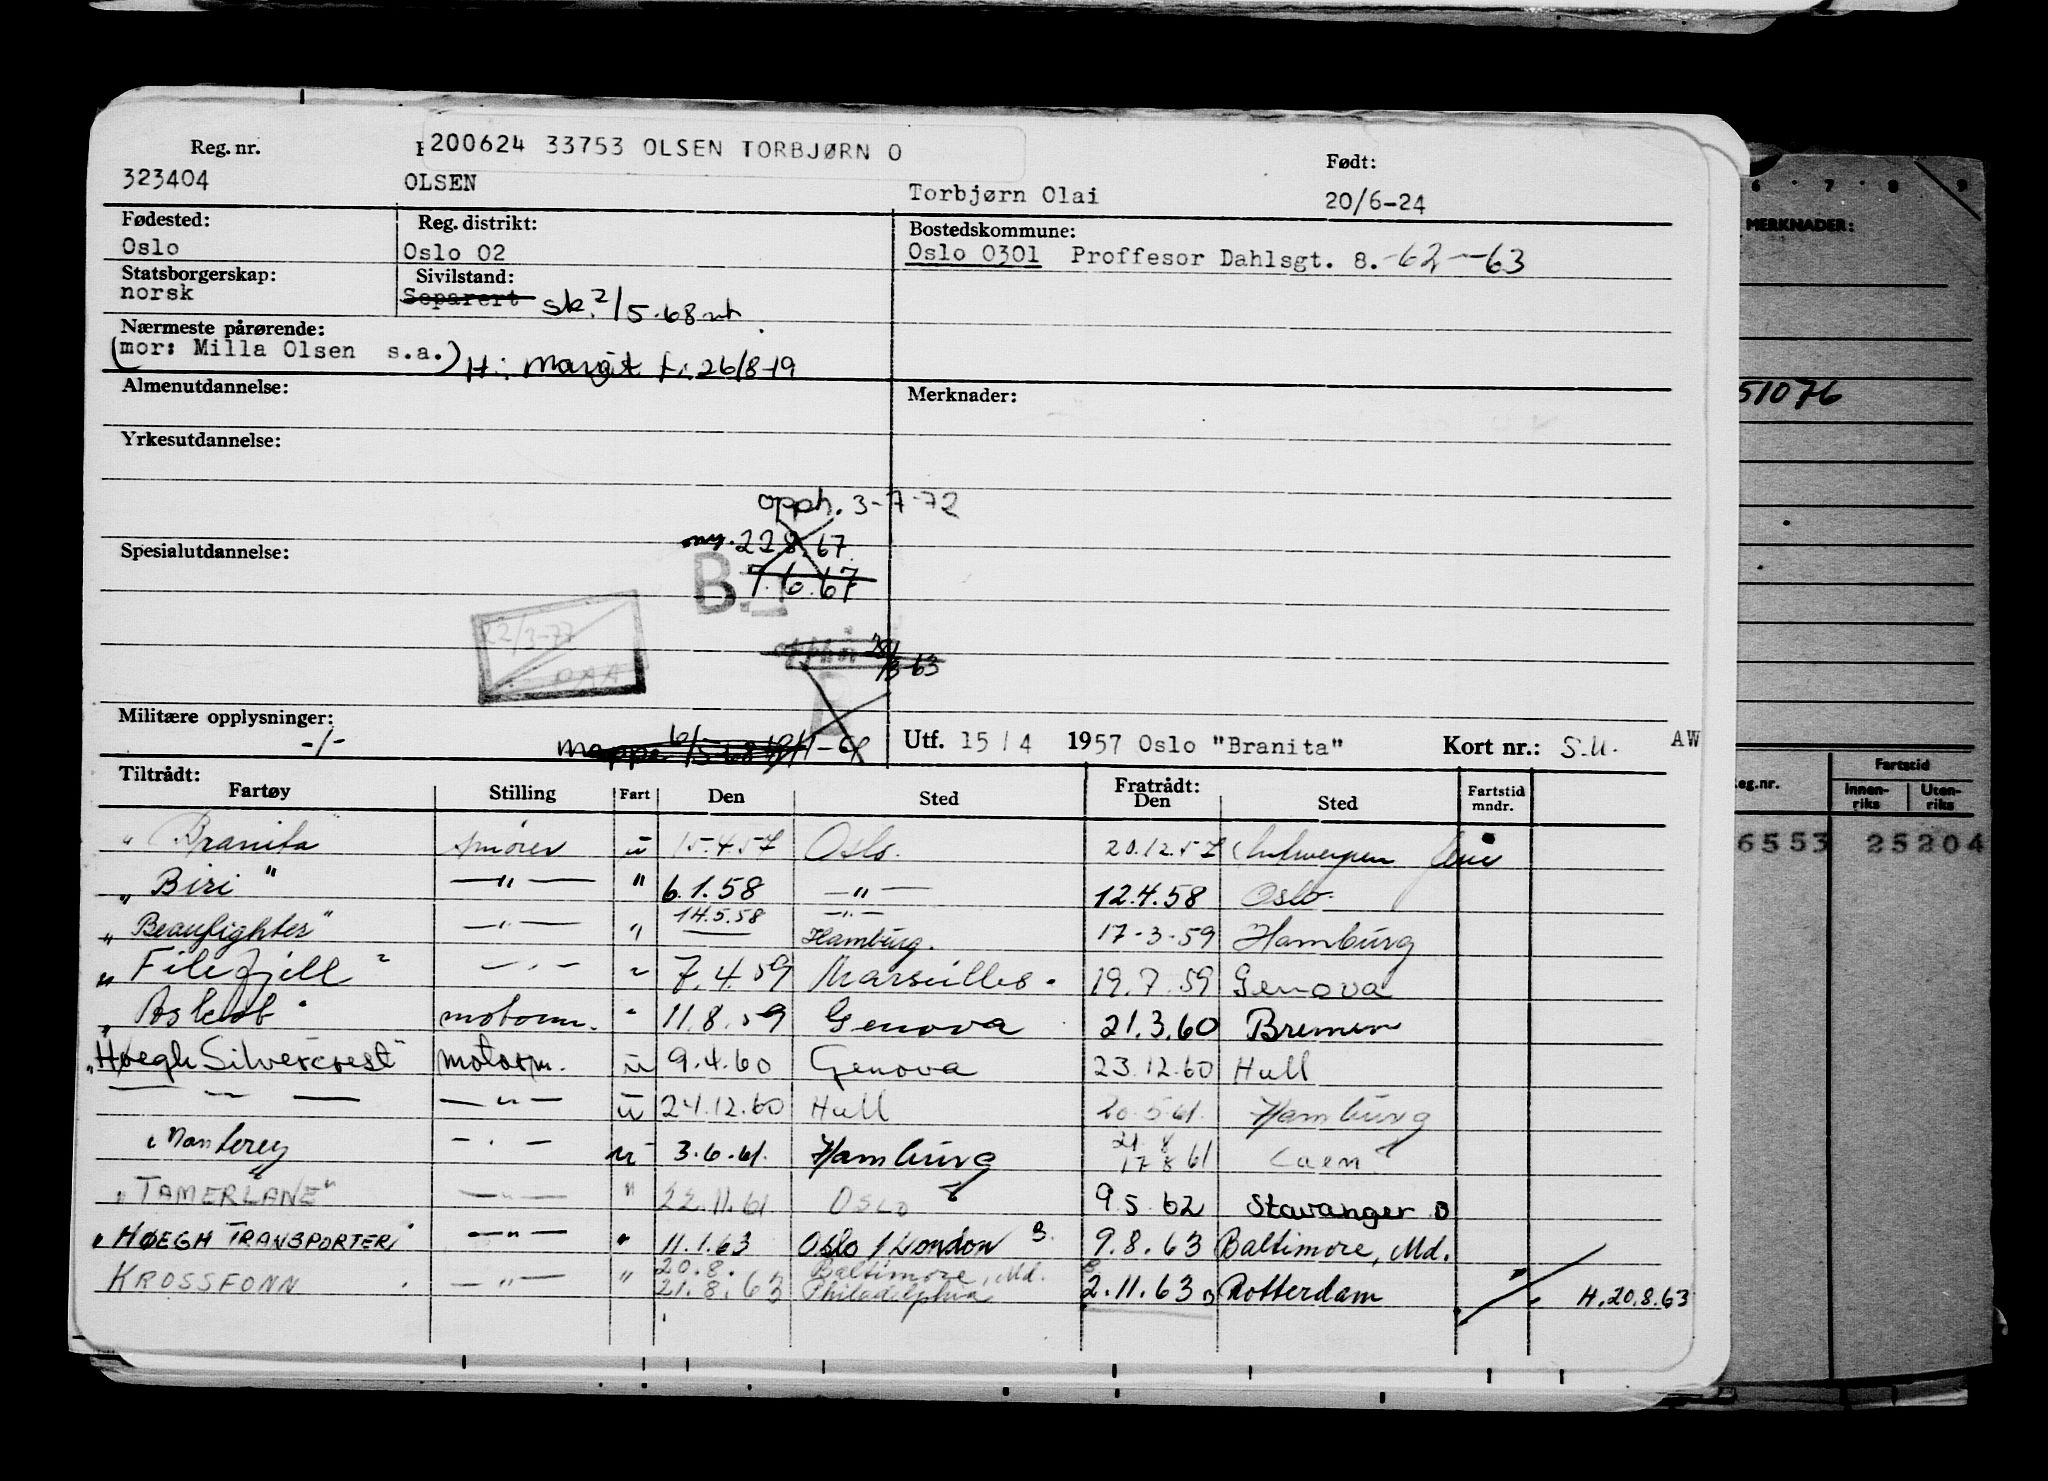 Reg. nr. 200624 33753 OLSEN TORBJØRN O Født:
323404 OLSEN Torbjørn Olai 20/6-24
Fødested: Reg. distrikt: Bostedskommune:
Oslo Oslo 02 Oslo 0301 Proffesor Dahlsgt. 8. -62 -63
Statsborgerskap: Sivilstand:
norsk Separert sk. 2/5.68
Nærmeste pårørende:
(mor: Milla Olsen s.a.) H: Margit f. 26/8-19
Almenutdannelse: Merknader:
Yrkesutdannelse:
opph. 3-7-72
ny. 22.8.67
Spesialutdannelse:
B.I 7.6.67
22/3-77
3-63
Militære opplysninger:
-/-
Utf. 15/4 1957 Oslo "Branita" Kort nr.: S.U. AW
Tiltrådt: Fratrådt:
Fartøy Stilling Fart Den Sted Den Sted Fartstid mndr.
"Branita" smører u 15.4.57 Oslo. 20.12.57 Antwerpen
"Biri" —"— " 6.1.58 —"— 12.4.58 Oslo
"Beaufighter" —"— " 14.5.58 —"— Hamburg. 17-3-59 Hamburg
"Filefjell" —"— " 7.4.59 Marseilles. 19.7.59 Genova
"Askot" motorm. " 11.8.59 Genova 21.3.60 Bremen
"Høegh Silvercrest" motorm. u 9.4.60 Genova 23.12.60 Hull
— " — —"— u 24.12.60 Hull 20.5.61. Hamburg
"Monterey —"— u 3.6.61. Hamburg 21 8 17 8 61 Caen
"TAMERLANE" —"— " 22.11.61 OSLO 9.5.62 Stavanger B
"HØEGH TRANSPORTER" —"— " 11.1.63 Oslo / London B. 9.8.63 Baltimore, Md.
KROSSFONN —"— " 20.8. 21.8.63 Baltimore, Md. Philadelphia 2.11.63 B Rotterdam H. 20.8.63
6 7 8 9
MERKNADER:
51076
Reg.nr. Fartstid
Innenriks Utenriks
6553 25204